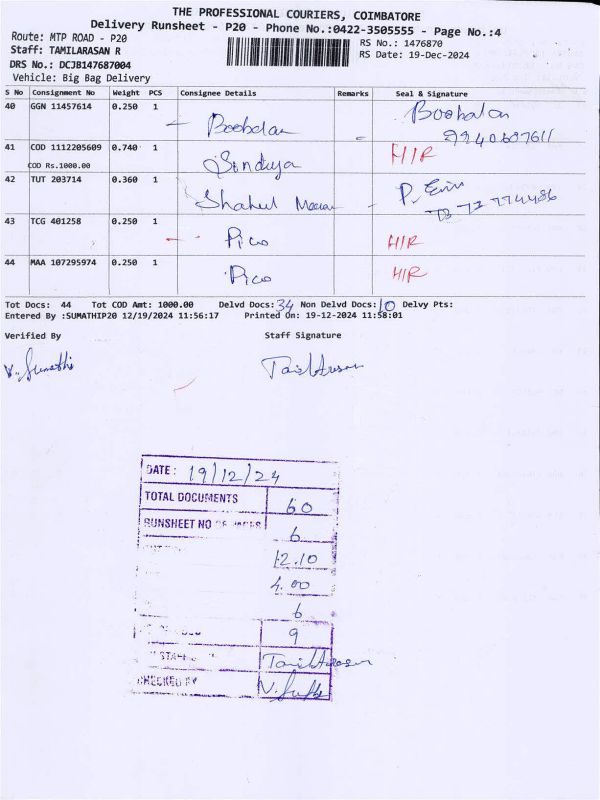 THE PROFESSIONAL COURIERS, COIMBATORE
Delivery Runsheet - P20 - Phone No.:0422-3505555 - Page No.:4
Route: MTP ROAD - P20
RS No.: 1476870
Staff: TAMILARASAN R
RS Date: 19-Dec-2024
DRS No.: DCJB147687004
Vehicle: Big Bag Delivery
S No Consignment No Weight PCS Consignee Details Remarks Seal & Signature
40 GGN 11457614 0.250 1 Boobalan Boobalan
41 COD 1112205609 0.740 1 Sinduja H/R
COD Rs.1000.00
42 TUT 203714 0.360 1 Shahul
43 TCG 401258 0.250 1 Pico H/R
44 MAA 107295974 0.250 1 Pico H/R
Tot Docs: 44 Tot COD Amt: 1000.00 Delvd Docs: 34 Non Delvd Docs: 10 Delvy Pts:
Entered By :SUMATHIP20 12/19/2024 11:56:17 Printed On: 19-12-2024 11:58:01
Verified By Staff Signature
V. Sumathi
DATE: 19/12/24
TOTAL DOCUMENTS 60
RUNSHEET NO OF PAGES 6
12.10
4.00
6
9
STAFF
CHECKED BY